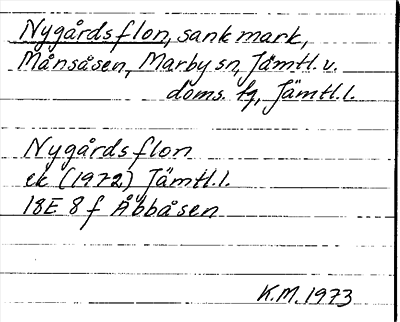 Nygårdsflon, sank mark,
Månsåsen, Marby sn, Jämtl. v.
doms. fg, Jämtl. l.
Nygårdsflon
ek (1972) Jämtl. l.
18E 8f Åbbåsen
K.M. 1973